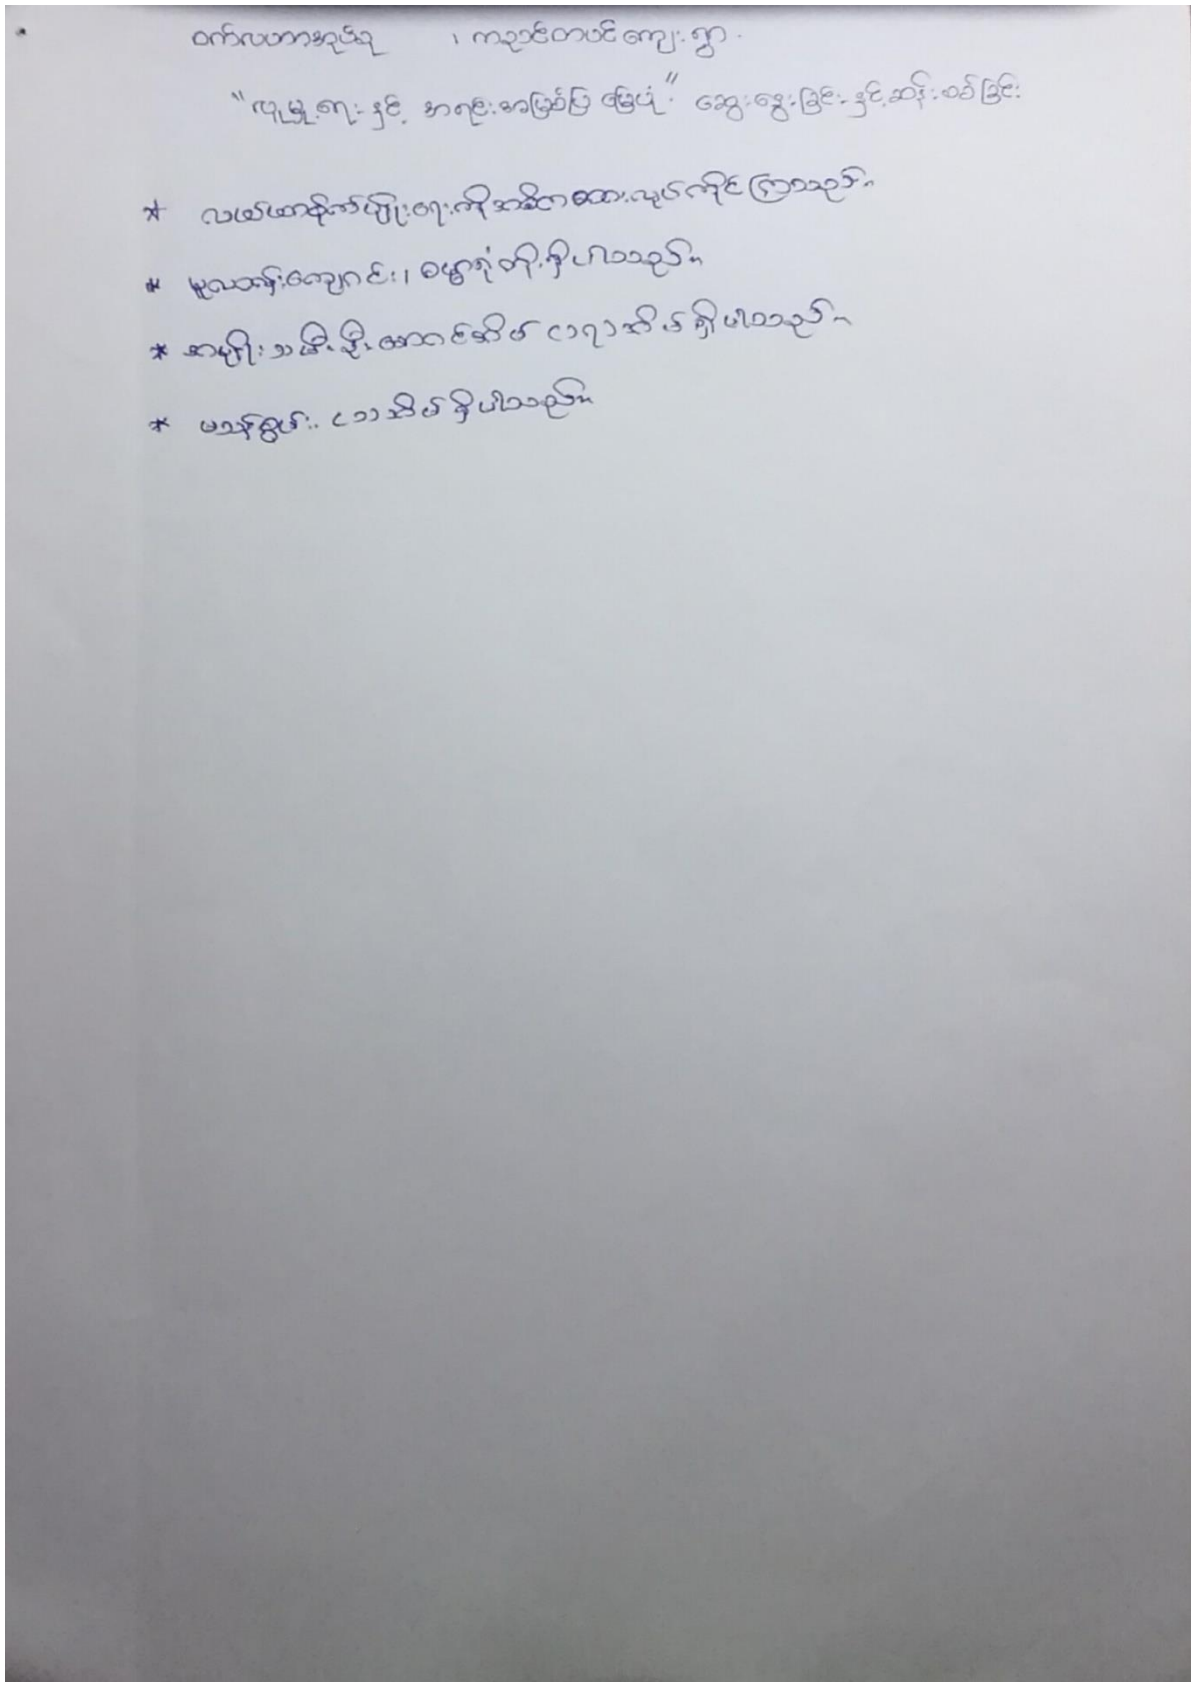 ဝက်လဟာအုပ်စု ၊ ကညင်တပင်ကျေးရွာ
"လူမှုရေးနှင့် အရင်းအမြစ်ပြ မြေပုံ" ဆွေးနွေးခြင်းနှင့်ဆန်းစစ်ခြင်း
* လယ်ယာစိုက်ပျိုးရေးကိုအဓိကထားလုပ်ကိုင်ကြသည်။
* မူလတန်းကျောင်း၊ ဓမ္မာရုံတို့ရှိပါသည်။
* အမျိုးသမီးဦးဆောင်အိမ် (၁၅) အိမ်ရှိပါသည်။
* မသန်စွမ်း (၁) အိမ်ရှိပါသည်။